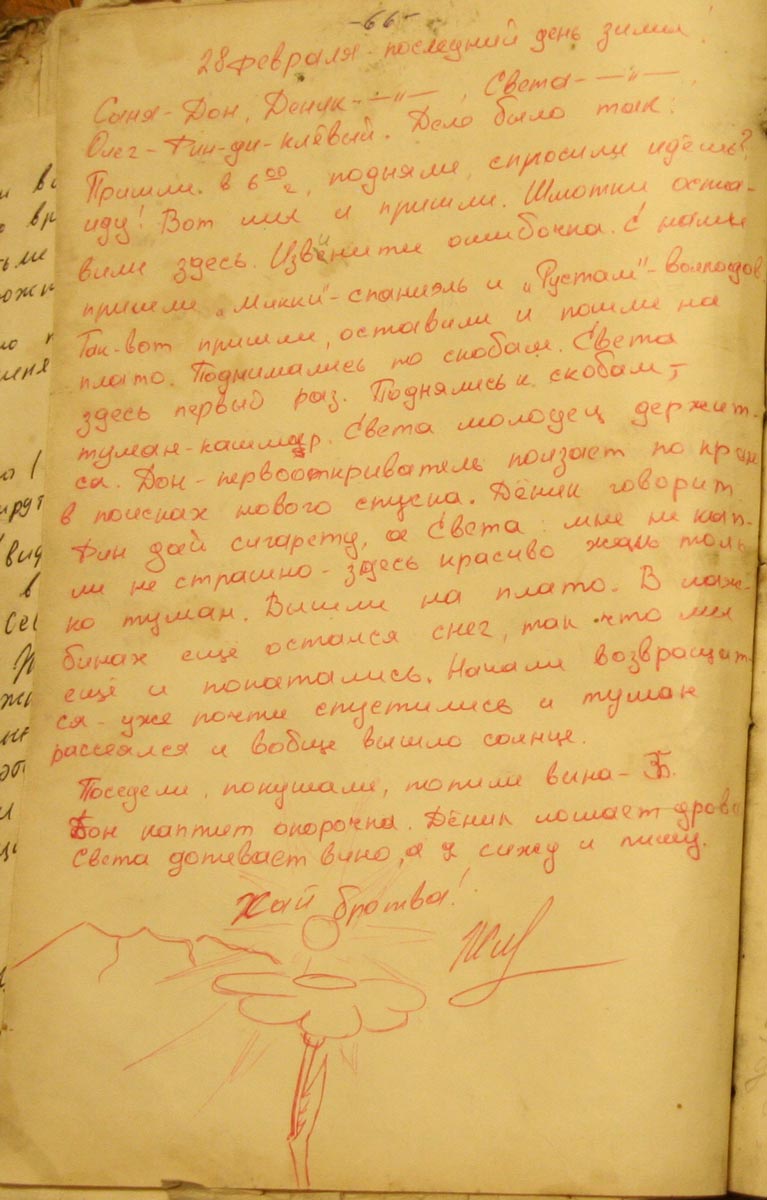 -66-
28 февраля - последний день зимы!
Саня - Дон, Дёник - —"—, Света - —"—,
Олег - Фин-ди-клёвый. Дело было так:
Пришли в 6⁰⁰ г, подняли, спросили идёшь?
иду! Вот мы и пришли. Шмотки оста-
вили здесь. Извените ошибочка. С нами
пришли „Микки"- спаниэль и „Рустам"-
Так-вот пришли, оставили и пошли на
плато. Поднимались по скобам. Света
здесь первый раз. Поднялись к скобам,-
туман-кашмар. Света молодец держит-
ся. Дон - первооткриватель ползает по краю
в поисках нового спуска. Дёник говорит
Фин дай сигарету, а Света: мне не кап-
ли не страшно - здесь красиво жаль толь
ко туман. Вышли на плато. В лож-
бинах ещё остался снег, так что мы
ещё и покатались. Начали возвращат-
ся - уже почти спустились и туман
рассеялся и вобще вышло солнце.
Поседели, покушали, попили вина-
Дон каптит окорочка. Дёник ломает дрова
Света допивает вино, а я сижу и пишу.
Хай братва!